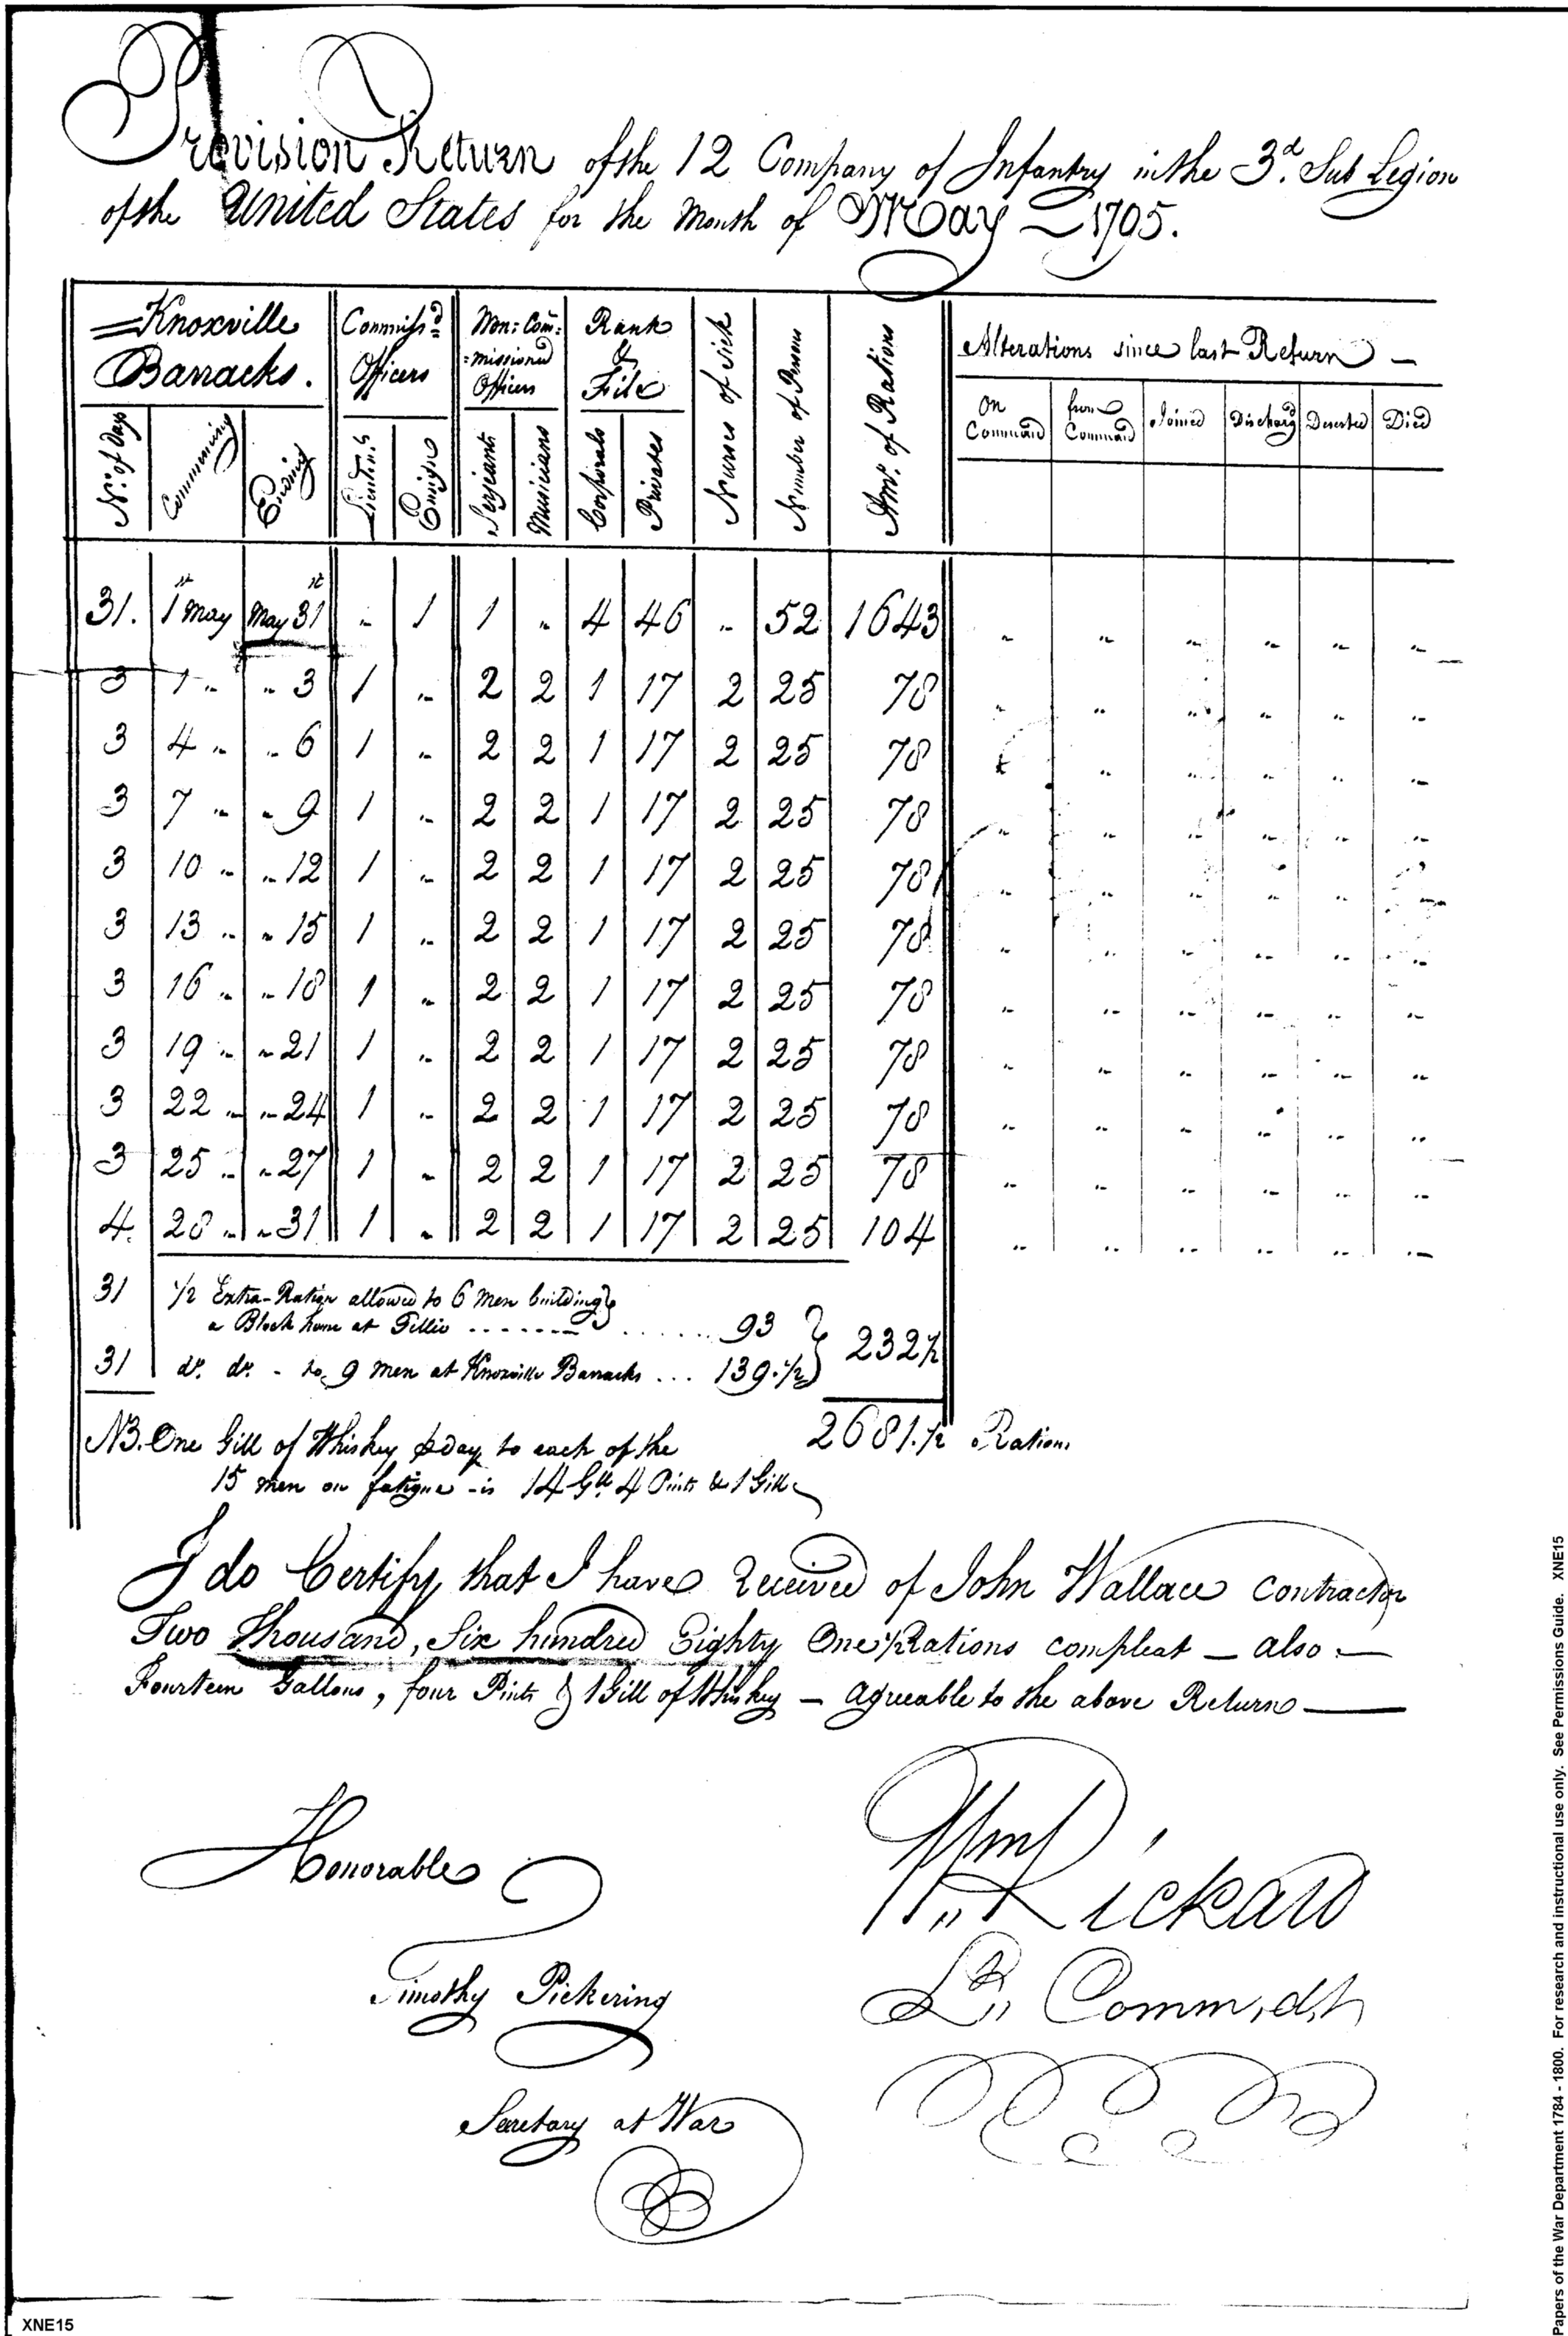 Provision Return of the 12 Company of Infantry in the 3.d Sub Legion
of the United States for the Month of May — 1795.
Knoxville Barracks.
Commiss.d Officers
Non: Com: =missioned Officers
Rank & File
Nurses of Sick
Number of Persons
Am.t of Rations
Alterations since last Return —
No. of Days
Commencing
Ending
Lieuten.ts
Ensign
Serjeants
Musicians
Corporals
Privates
On Command
from Command
Joined
Discharg.d
Deserted
Died
31. 1st May May 31st " 1 1 " 4 46 " 52 1643 " " " " " "
3 1 " " 3 1 " 2 2 1 17 2 25 78 " " " " " "
3 4 " " 6 1 " 2 2 1 17 2 25 78 " " " " "
3 7 " " 9 1 " 2 2 1 17 2 25 78 " " " " " "
3 10 " " 12 1 " 2 2 1 17 2 25 78 " " " " " "
3 13 " " 15 1 " 2 2 1 17 2 25 78 " " " " " "
3 16 " " 18 1 " 2 2 1 17 2 25 78 " " " " " "
3 19 " " 21 1 " 2 2 1 17 2 25 78 " " " " " "
3 22 " " 24 1 " 2 2 1 17 2 25 78 " " " " " "
3 25 " " 27 1 " 2 2 1 17 2 25 78 " " " " " "
4. 28 " " 31 1 " 2 2 1 17 2 25 104 " " " " " "
31 1/2 Extra-Ration allowed to 6 Men building
a Block house at Tellico ....... 93
232 1/2
31 do. do. - to 9 Men at Knoxville Barracks ... 139.1/2
2681.1/2 Rations
NB. One Gill of Whiskey p day to each of the
15 men on fatigue - is 14 Gll. 4 Pints & 1 Gill
I do Certify, that I have Received of John Wallace contractor
Two Thousand, Six hundred Eighty One 1/2 Rations compleat — also —
Fourteen Gallons, four Pints & 1 Gill of Whiskey — agreeable to the above Return —
Honorable
Timothy Pickering
Secretary at War
Wm Rickard
Lt. Comm,dt,
XNE15
Papers of the War Department 1784 - 1800. For research and instructional use only. See Permissions Guide. XNE15